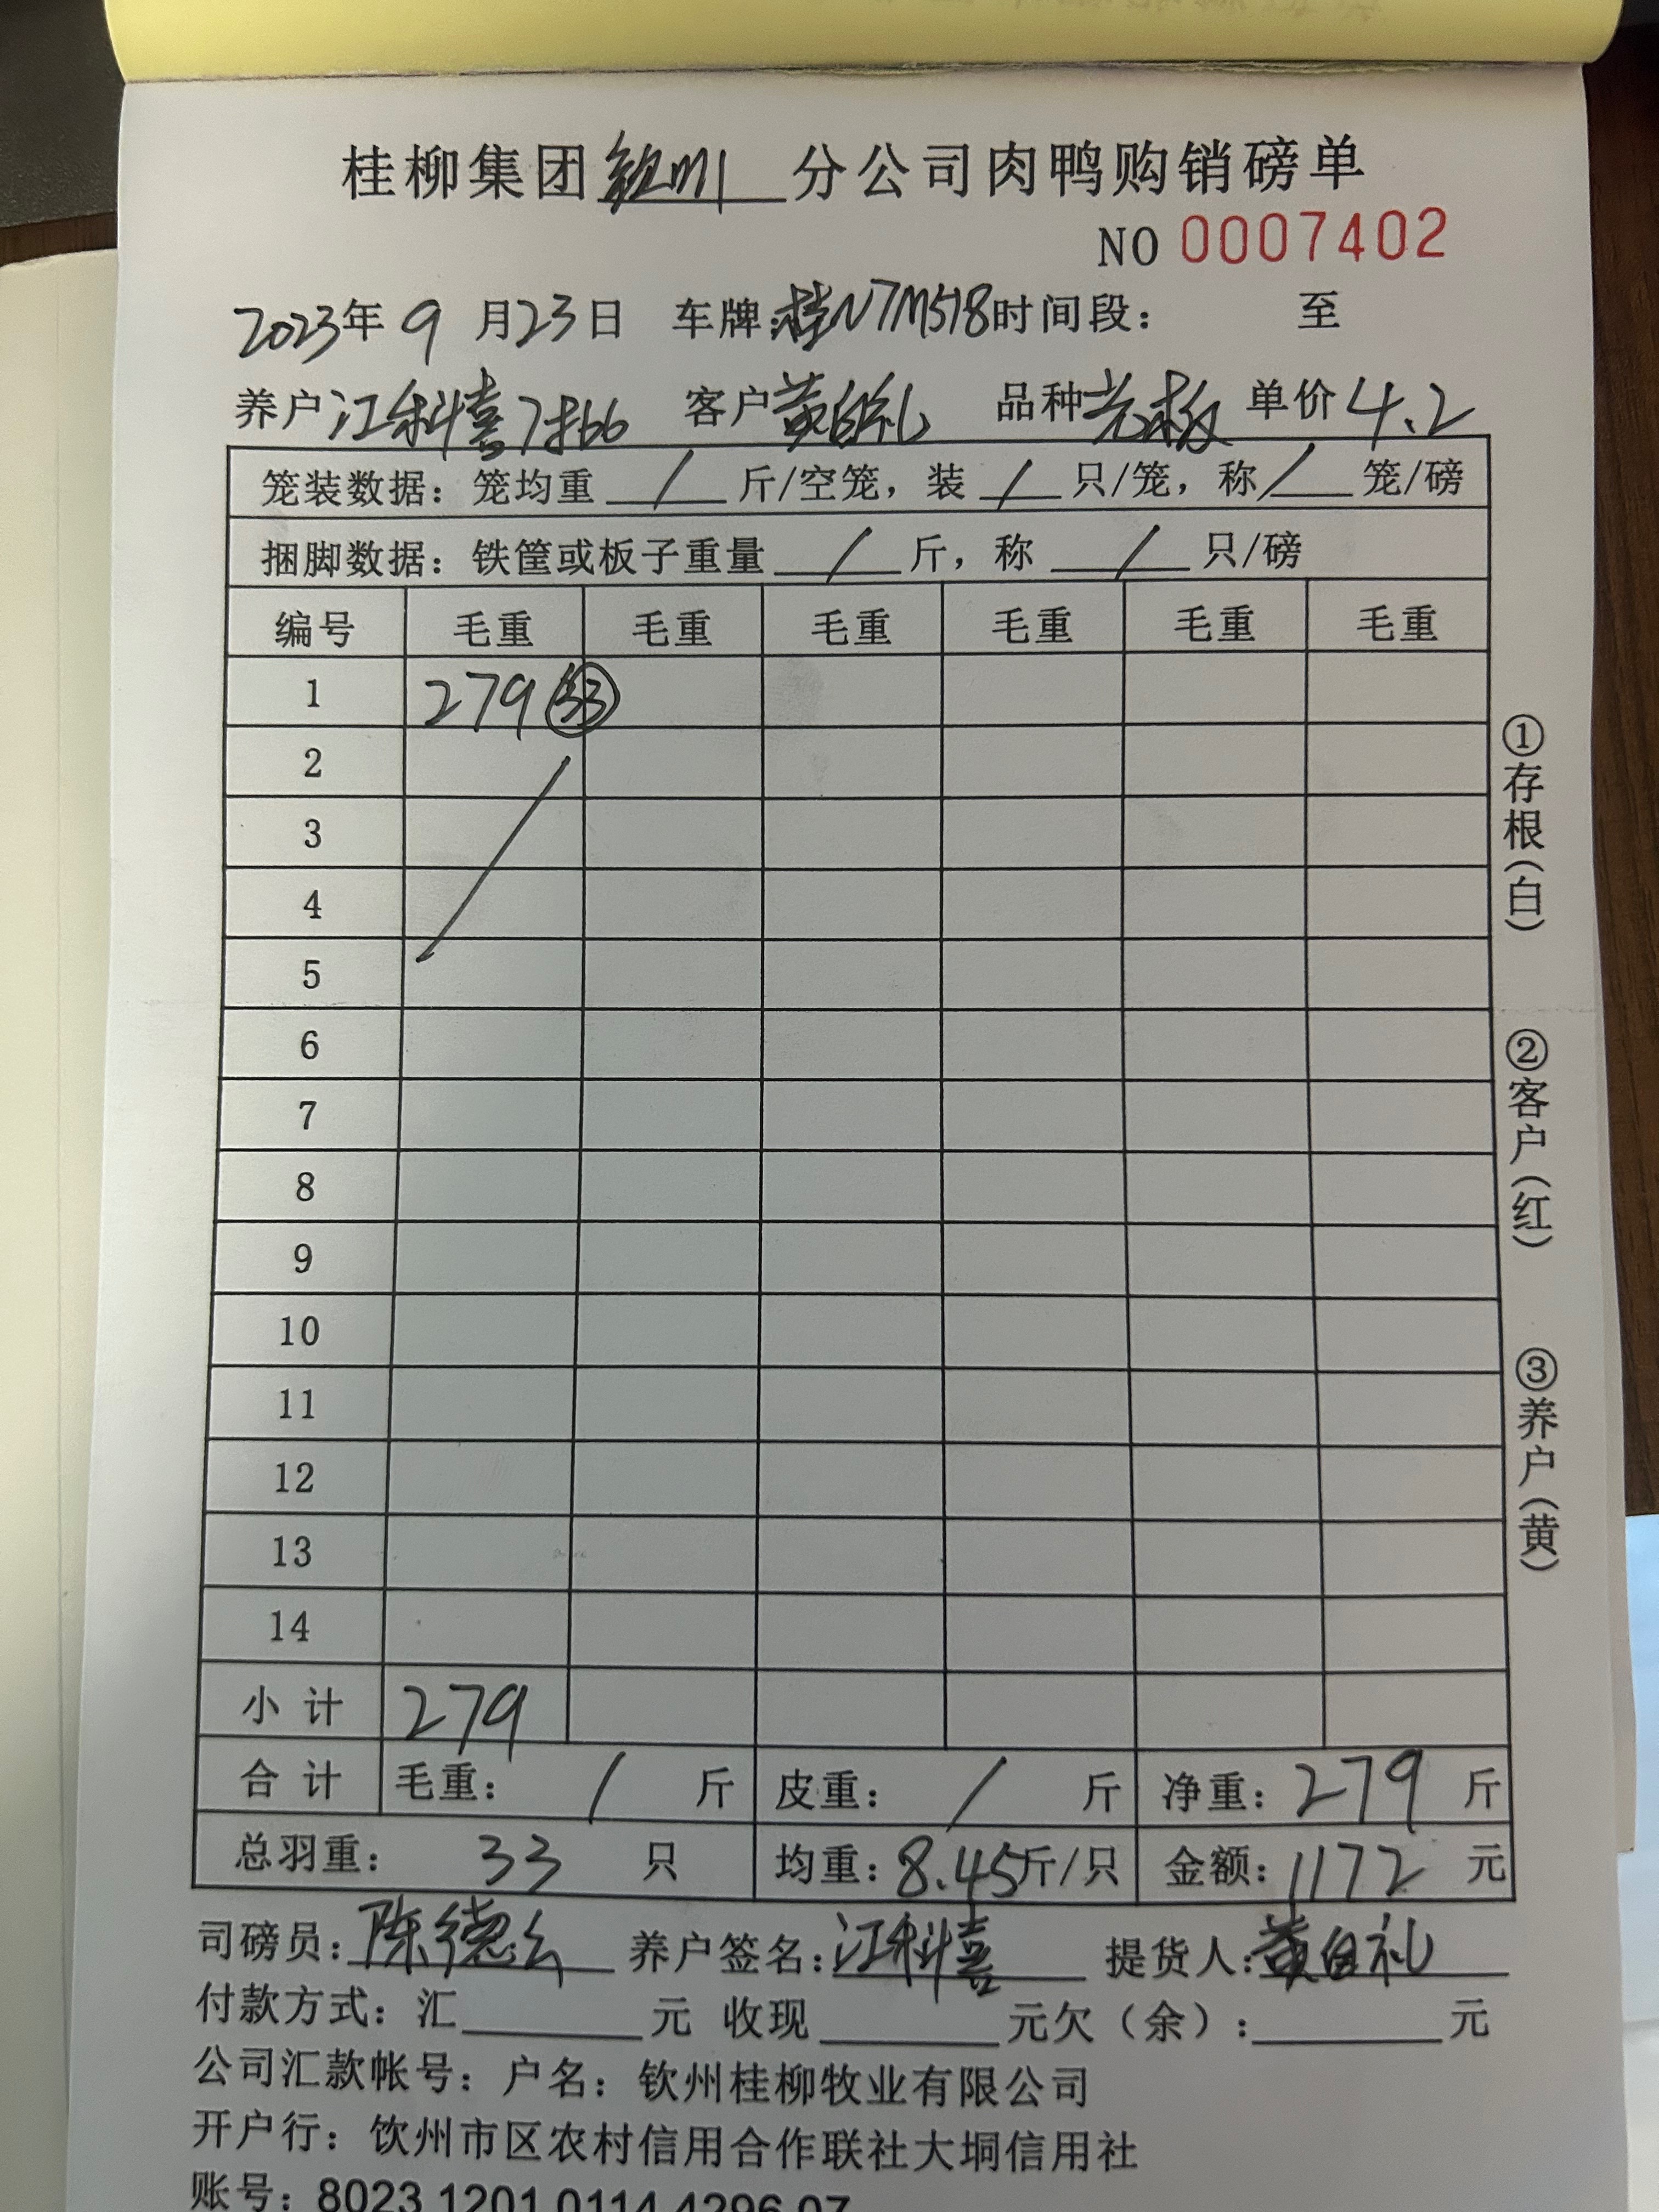 桂柳集团钦州分公司肉鸭购销磅单
NO 0007402
2023年9月23日 车牌:桂N7M518时间段: 至
养户江科喜 客户黄白礼 品种光板 单价4.2
笼装数据:笼均重/斤/空笼,装/只/笼,称/笼/磅
捆脚数据:铁筐或板子重量/斤,称/只/磅
编号 毛重 毛重 毛重 毛重 毛重 毛重
1 279 (33)
2
3
4
5
6
7
8
9
10
11
12
13
14
小计 279
合计 毛重: / 斤 皮重: / 斤 净重:279斤
总羽重: 33 只 均重:8.45斤/只 金额:1172元
司磅员:陈德 养户签名:江科喜 提货人:黄白礼
付款方式:汇______元 收现______元欠(余):______元
公司汇款帐号:户名:钦州桂柳牧业有限公司
开户行:饮州市区农村信用合作联社大垌信用社
账号:8023 1201 0114 4296 07
①存根(白)
②客户(红)
③养户(黄)